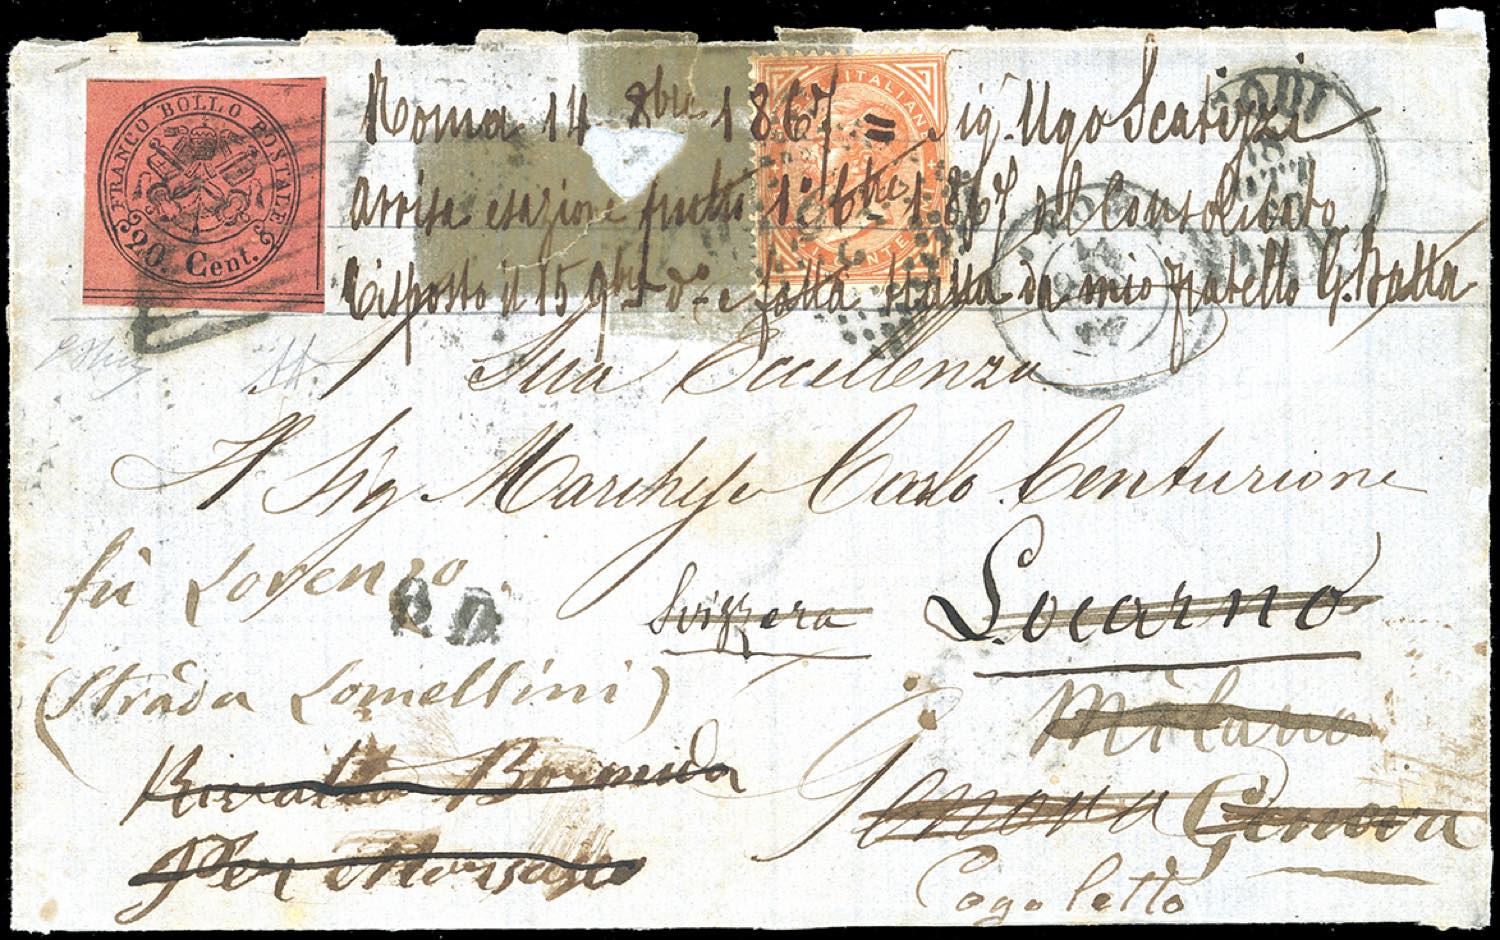 FRANCO BOLLO POSTALE
20. Cent.
Roma 14 8bre 1867 = Sig. Ugo Scarizzi
avvisa esazione frutti 1° 6tre 1867 del Consolidato
Risposto il 15 9bre do e fatta tratta da mio fratello G. Batta
ITALIANE
Sua Eccellenza
Il Sig Marchese Carlo Centurione
fù Lorenzo
P.D.
Svizzera Locarno
(Strada Lomellini)
Milano
Bormida
Genova Genova
Cogoletto